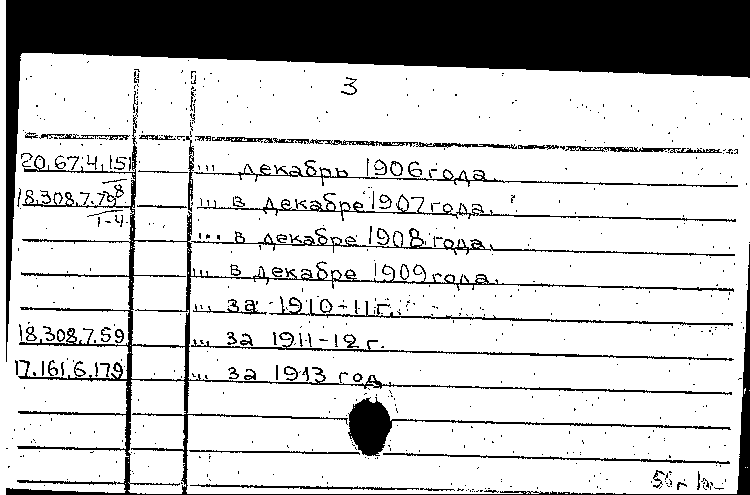 3
20,67,4,151 ... декабрь 1906 года.
18,308,7,79⁸ ... в декабре 1907 года.
1-4 ... в декабре 1908 года.
... в декабре 1909 года.
... за 1910-11 г.
18,308,7,59 ... за 1911-12 г.
17.161,6,179 ... за 1913 год